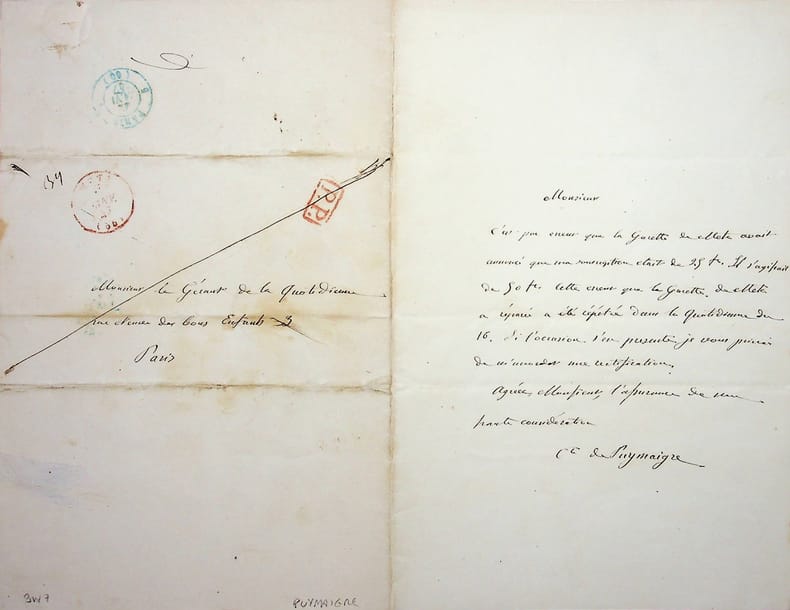 (60)
PARIS
134
METZ
JANV.
(55)
P.P.
Monsieur le Gérant de la Quotidienne
rue neuve des bons Enfants 3
Paris
3W7
PUYMAIGRE
Monsieur
C'est par erreur que la Gazette de Metz avait
annoncé que ma souscription était de 25 fr. Il s'agissait
de 50 fr. Cette erreur que la Gazette de Metz
a réparée a été répétée dans la Quotidienne du
16. Si l'occasion s'en présente, je vous prierai
de m'accorder une rectification.
Agréez, Monsieur, l'assurance de ma
haute considération
Cte de Puymaigre